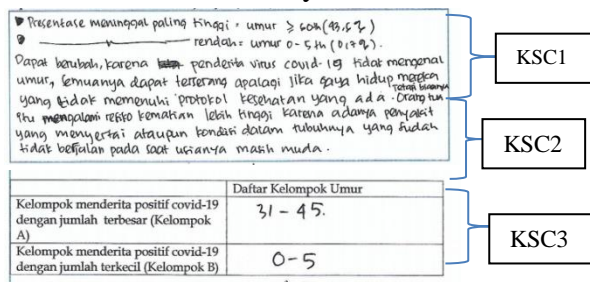 Presentase meninggal paling tinggi = umur ≥ 60th (43,5%)
rendah = umur 0-5th (0,7%).
Dapat berubah, karena penderita virus covid-19 tidak mengenal
umur, semuanya dapat terserang apalagi jika gaya hidup mereka
yang tidak memenuhi protokol kesehatan yang ada. Tetapi biasanya Orang tua
itu mengalami resiko kematian lebih tinggi karena adanya penyakit
yang menyertai ataupun kondisi dalam tubuhnya yang sudah
tidak berjalan pada saat usianya masih muda.
KSC1
KSC2
Daftar Kelompok Umur
Kelompok menderita positif covid-19 dengan jumlah terbesar (Kelompok A)
31 - 45.
Kelompok menderita positif covid-19 dengan jumlah terkecil (Kelompok B)
0-5
KSC3